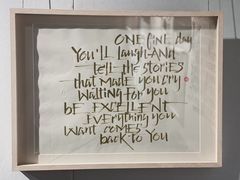 ONE fiNE day
You'll laugh AND
tell the stories
that made you cry
Waiting for you
bE EXCELLENT
EVErything you
want comes
back to You